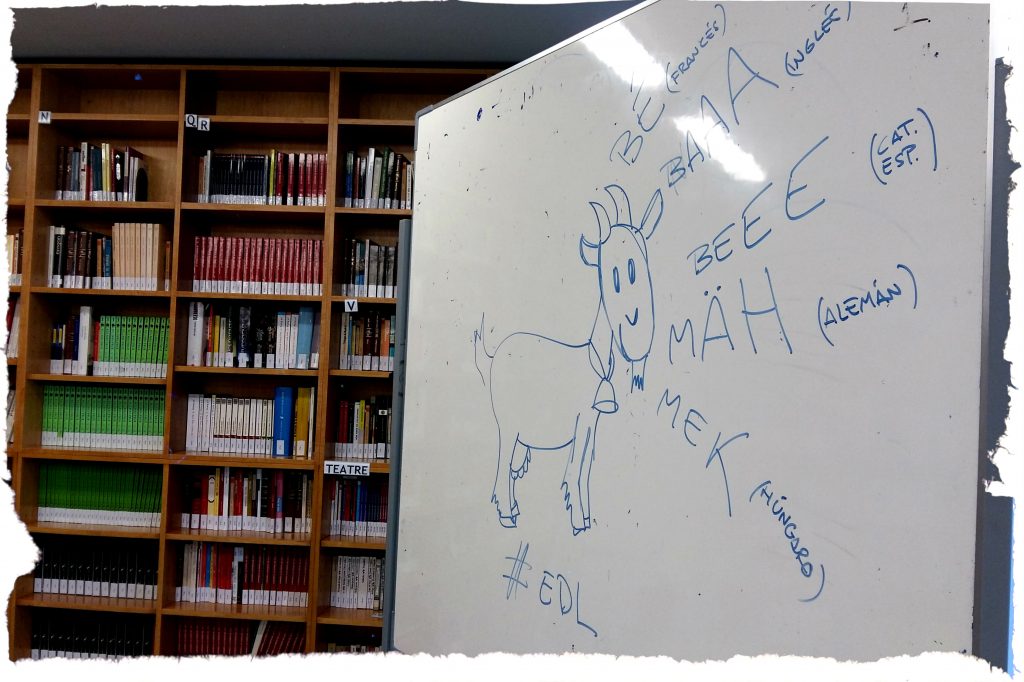 N
QR
V
TEATRE
BÉ (FRANCÉS)
BAAA (INGLÉS)
BEEE (CAT. ESP.)
MÄH (ALEMÁN)
MEK (HÚNGARO)
#EDL